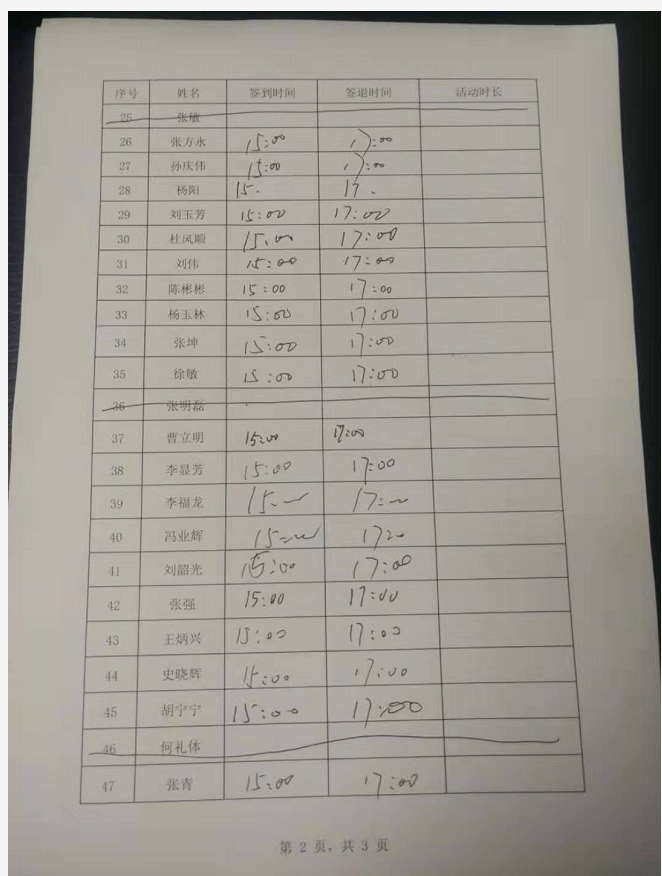 序号 姓名 签到时间 签退时间 活动时长
25 张敏
26 张方永 15:00 17:00
27 孙庆伟 15:00 17:00
28 杨阳 15. 17.
29 刘玉芳 15:00 17:00
30 杜凤顺 15:00 17:00
31 刘伟 15:00 17:00
32 陈彬彬 15:00 17:00
33 杨玉林 15:00 17:00
34 张坤 15:00 17:00
35 徐敏 15:00 17:00
36 张明磊
37 曹立明 15:00 17:00
38 李显芳 15:00 17:00
39 李福龙 15:00 17:00
40 冯业辉 15:00 17:00
41 刘韶光 15:00 17:00
42 张强 15:00 17:00
43 王炳兴 15:00 17:00
44 史晓辉 15:00 17:00
45 胡宁宁 15:00 17:00
46 何礼体
47 张青 15:00 17:00
第 2 页,共 3 页